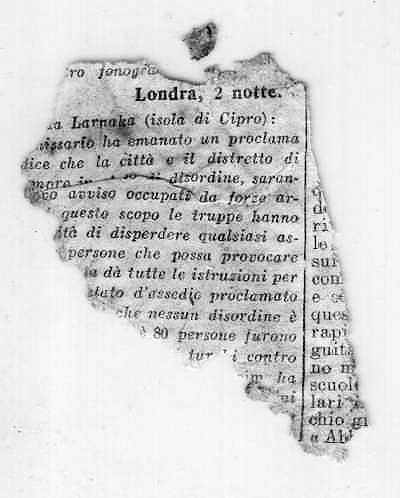 ro fonogra
Londra, 2 notte.
a Larnaka (isola di Cipro):
issario ha emanato un proclama
dice che la città e il distretto di
di disordine, saran-
avviso occupati da forze ar-
questo scopo le truppe hanno
ità di disperdere qualsiasi as-
persone che possa provocare
a dà tutte le istruzioni per
stato d'assedio proclamato
che nessun disordine è
è 80 persone furono
tur i contro
ha
ni
q
d
ri
le
sui
con
e se
ques
rapi
guita
no m
scuol
lari
chio gi
a Al